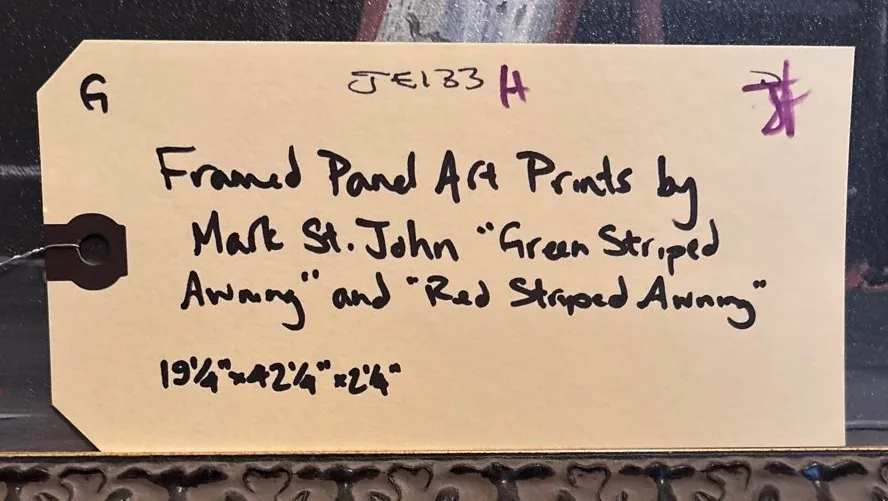 G
JE133 H
Framed Panel Art Prints by
Mark St. John "Green Striped
Awning" and "Red Striped Awning"
19¼"x42¼"x2¼"